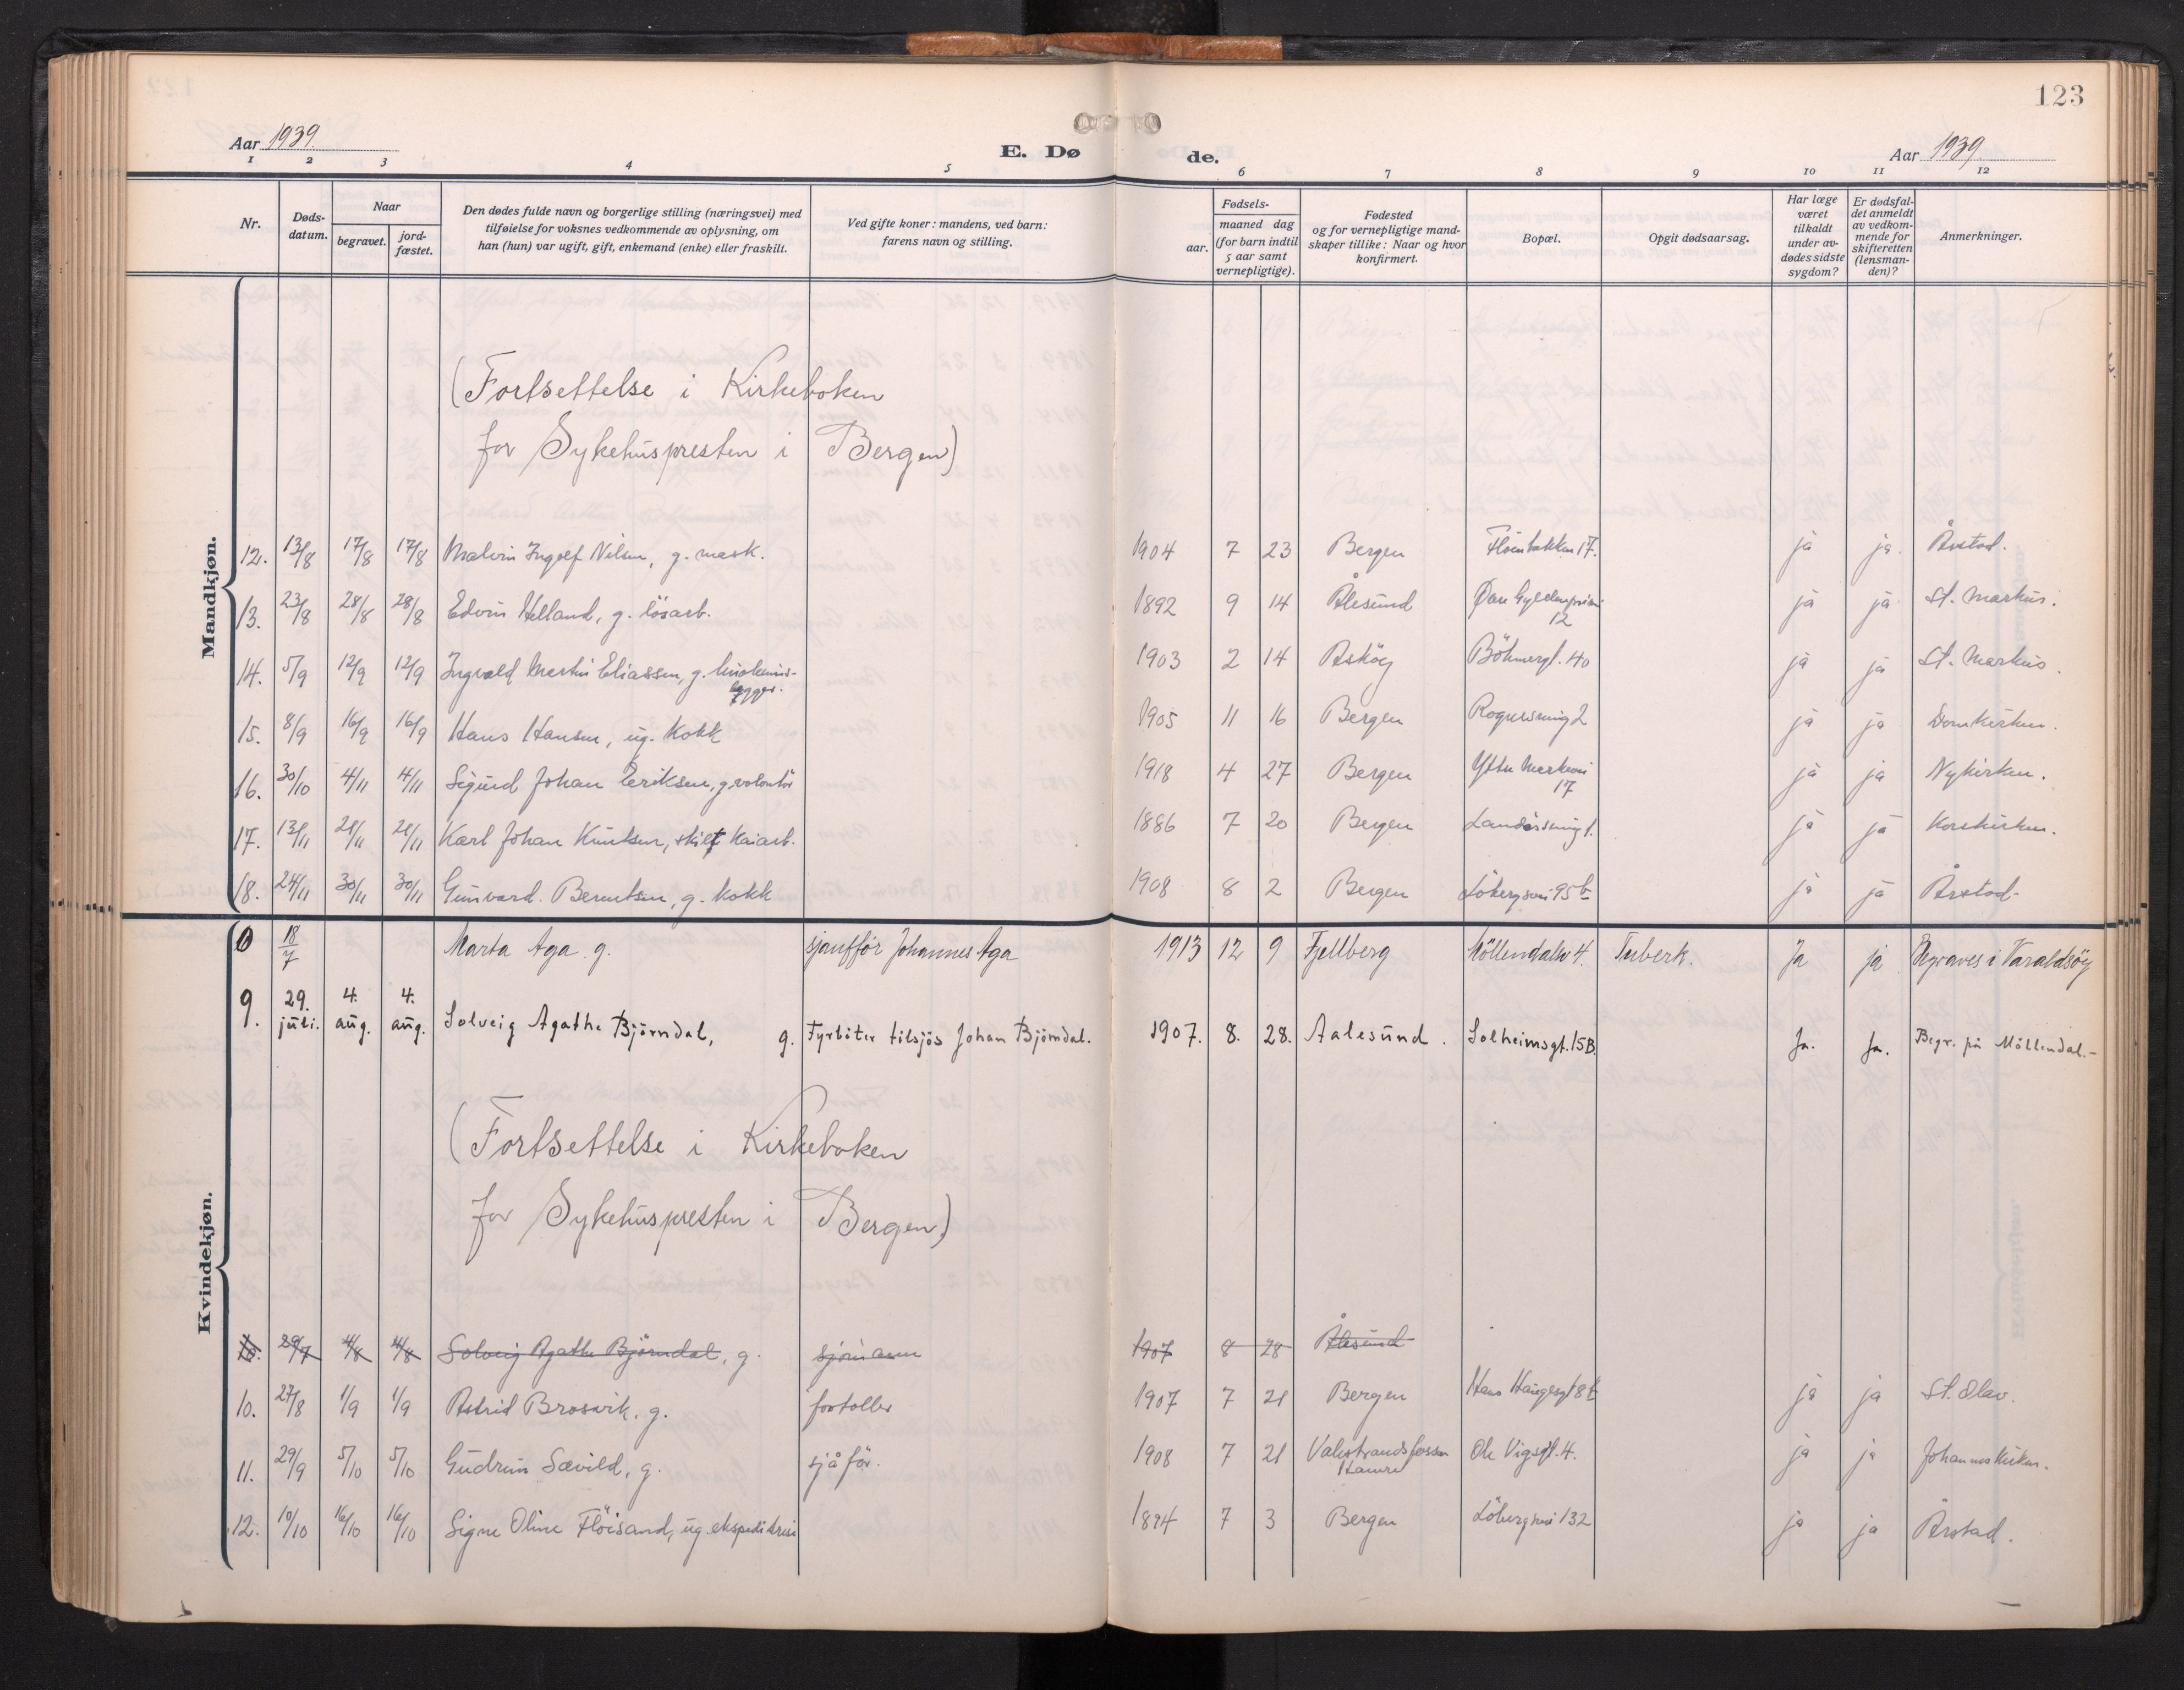 123
Aar 1939.
E. Dø
de.
Aar 1939
1 2 3 4 5 6 7 8 9 10 11 12
Nr.
Døds-
datum.
Naar
begravet.
jord-
fæstet.
Den dødes fulde navn og borgerlige stilling (næringsvei) med
tilføielse for voksnes vedkommende av oplysning, om
han (hun) var ugift, gift, enkemand (enke) eller fraskilt.
Ved gifte koner: mandens, ved barn:
farens navn og stilling.
Fødsels-
aar.
maaned dag
(for barn indtil
5 aar samt
vernepligtige).
Fødested
og for vernepligtige mand-
skaper tillike: Naar og hvor
konfirmert.
Bopæl.
Opgit dødsaarsag.
Har læge
været
tilkaldt
under av-
dødes sidste
sygdom?
Er dødsfal-
det anmeldt
av vedkom-
mende for
skifteretten
(lensman-
den)?
Anmerkninger.
Mandkjøn.
(Fortsettelse i Kirkeboken
for Sykehuspresten i Bergen)
12. 13/8 17/8 17/8 Malvin Ingolf Nilsen, g. mask. 1904 7 23 Bergen Fløenbakken 17. ja ja. Årstad.
13. 23/8 28/8 28/8 Edvin Helland, g. løsarb. 1892 9 14 Ålesund Øvre 12 ja ja St. Markus.
14. 5/9 12/9 12/9 Ingvald Martin Eliassen, g. linoleums-
legger. 1903 2 14 Askøy Böhmergt. 40 ja ja St. Markus.
15. 8/9 16/9 16/9 Hans Hansen, ug. Kokk 1905 11 16 Bergen 2 ja ja Domkirken.
16. 30/10 4/11 4/11 Sigurd Johan Eriksen, g. volontör 1918 4 27 Bergen Ytre Markvei
17 ja ja Nykirken.
17. 13/11 21/11 21/11 Karl Johan Knutsen, skilt Kaiarb. 1886 7 20 Bergen ja ja Korskirken.
18. 24/11 30/11 30/11 Gunvard. Berentsen, g. kokk 1908 8 2 Bergen Löbergsvei 95 b ja ja Årstad.
Kvindekjøn.
18/7 Marta Aga. g. sjauffør Johannes Aga 1913 12 9 Fjellberg Möllendalsv 4. Tuberk. Ja ja Begraves i Varaldsöy
9. 29. juli. 4. aug. 4. aug. Solveig Agathe Björndal, g. Fyrböter tilsjös Johan Björndal. 1907. 8. 28. Aalesund. Solheimsgt. 15B. Ja. Ja. Begr. på Möllendal.-
(Fortsettelse i Kirkeboken
for Sykehuspresten i Bergen)
29/7 4/8 4/8 Solveig Agathe Björndal, g. sjömann 1907 8 28 Ålesund
10. 27/8 1/9 1/9 Astrid Brosvik, g. fortoller 1907 7 21 Bergen Hans Haugesgt 8 ja ja St. Olav.
11. 29/9 5/10 5/10 Gudrun Sævild, g. sjåför. 1908 7 21 Valestrandsfossen
Hamre Ole Vigsgt. 4. ja ja Johanneskirken.
12. 10/10 16/10 16/10 Signe Oline Flöisand, ug. ekspeditrise 1894 7 3 Bergen Löbergsvei 132 ja ja Årstad.